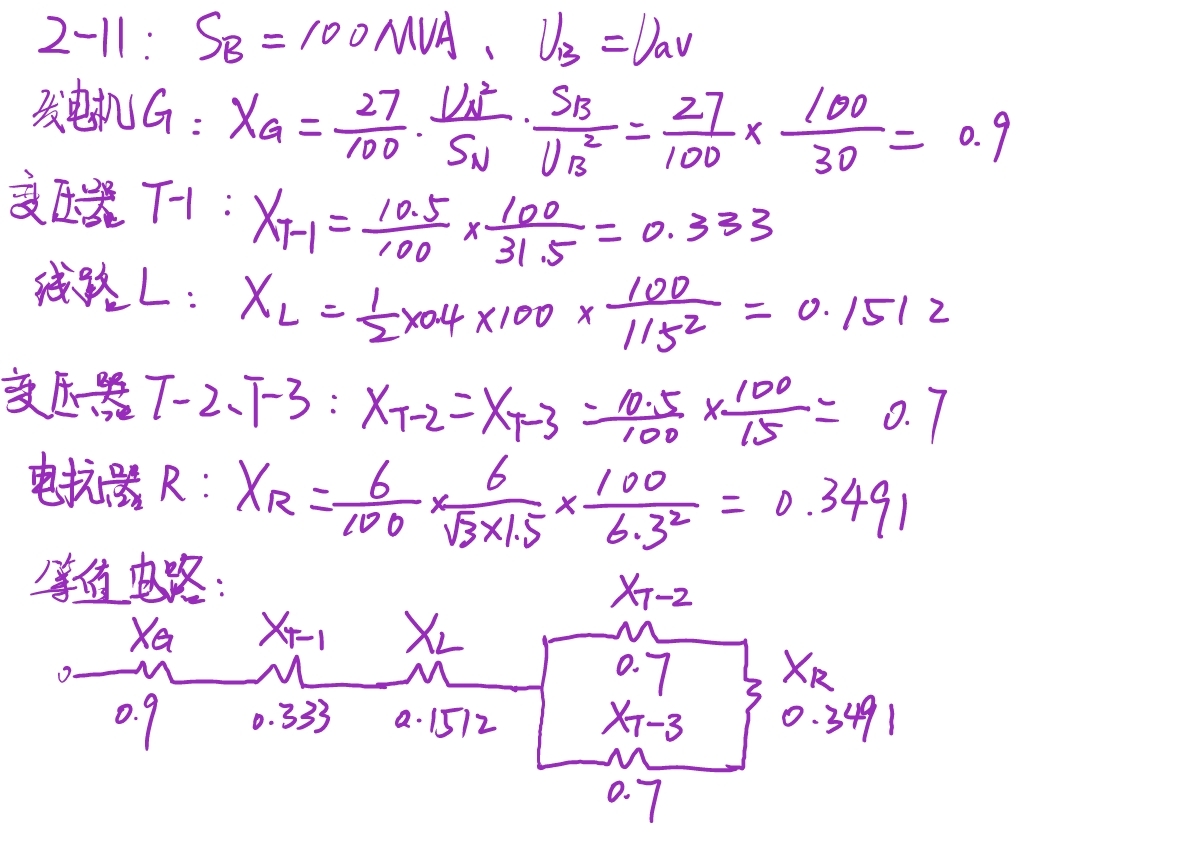 2-11: S_B = 100MVA、U_B = U_av
发电机G: X_G = 27/100 · U_N²/S_N · S_B/U_B² = 27/100 × 100/30 = 0.9
变压器 T-1: X_T-1 = 10.5/100 × 100/31.5 = 0.333
线路L: X_L = 1/2 ×0.4 ×100 × 100/115² = 0.1512
变压器 T-2、T-3: X_T-2 = X_T-3 = 10.5/100 × 100/15 = 0.7
电抗器 R: X_R = 6/100 × 6/(√3×1.5) × 100/6.3² = 0.3491
等值电路:
X_T-2
X_G X_T-1 X_L
0.7 X_R
0.9 0.333 0.1512 X_T-3 0.3491
0.7